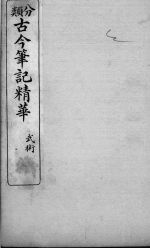 分類
古今筆記精華
武術